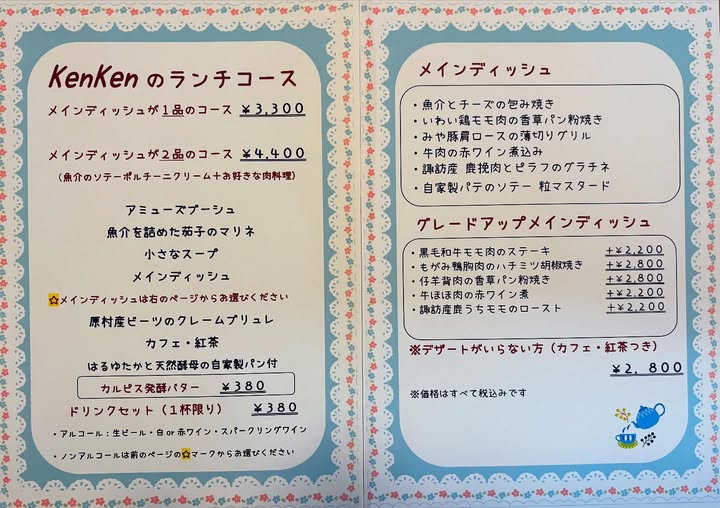 KenKen のランチコース
メインディッシュが1品のコース ¥3,300
メインディッシュが2品のコース ¥4,400
(魚介のソテーポルチーニクリーム+お好きな肉料理)
アミューズブーシュ
魚介を詰めた茄子のマリネ
小さなスープ
メインディッシュ
☆メインディッシュは右のページからお選びください
原村産ビーツのクレームブリュレ
カフェ・紅茶
はるゆたかと天然酵母の自家製パン付
カルピス発酵バター ¥380
ドリンクセット(1杯限り) ¥380
・アルコール:生ビール・白or赤ワイン・スパークリングワイン
・ノンアルコールは前のページの☆マークからお選びください
メインディッシュ
・魚介とチーズの包み焼き
・いわい鶏モモ肉の香草パン粉焼き
・みや豚肩ロースの薄切りグリル
・牛肉の赤ワイン煮込み
・諏訪産 鹿挽肉とピラフのグラチネ
・自家製パテのソテー 粒マスタード
グレードアップメインディッシュ
・黒毛和牛モモ肉のステーキ +¥2,200
・もがみ鴨胸肉のハチミツ胡椒焼き +¥2,800
・仔羊背肉の香草パン粉焼き +¥2,800
・牛ほほ肉の赤ワイン煮 +¥2,200
・諏訪産鹿うちモモのロースト +¥2,200
※デザートがいらない方(カフェ・紅茶つき)
¥2,800
※価格はすべて税込みです